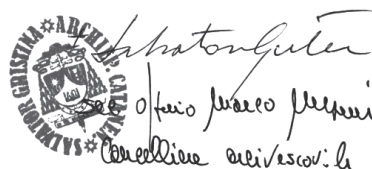 SALVATOR GRISTINA ARCHIEP. CATANEN.
+ Salvatore Gristina
Sac. Ottavio Marco
Cancelliere arcivescovile